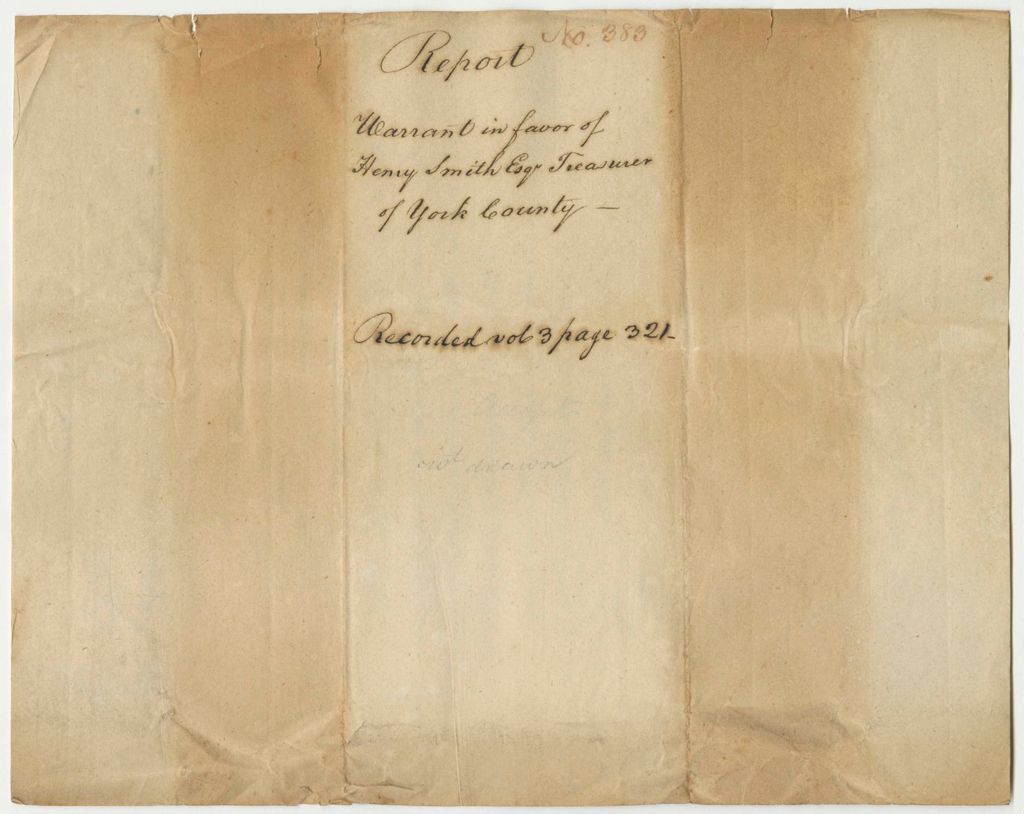 No. 383
Report
Warrant in favor of
Henry Smith Esqr Treasurer
of York County —
Recorded vol 3 page 321-
drawn